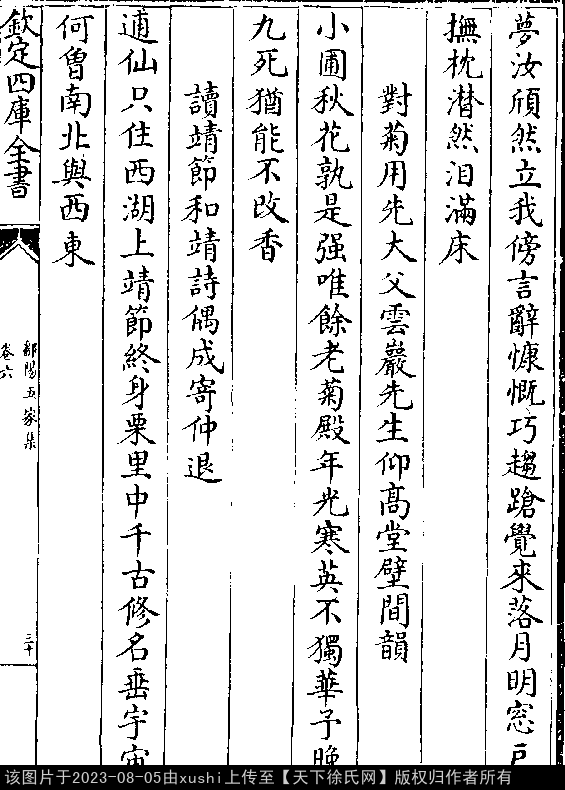 夢汝頎然立我傍言辭慷慨巧趨蹌覺來落月明窓戶
撫枕潸然泪滿床
對菊用先大父雲巖先生仰高堂壁間韻
小圃秋花孰是强唯餘老菊殿年光寒英不獨華予晚
九死猶能不改香
讀靖節和靖詩偶成寄仲退
逋仙只住西湖上靖節終身栗里中千古修名垂宇宙
何曾南北與西東
欽定四庫全書
鄱陽五家集
卷六
三十
该图片于2023-08-05由xushi上传至【天下徐氏网】版权归作者所有